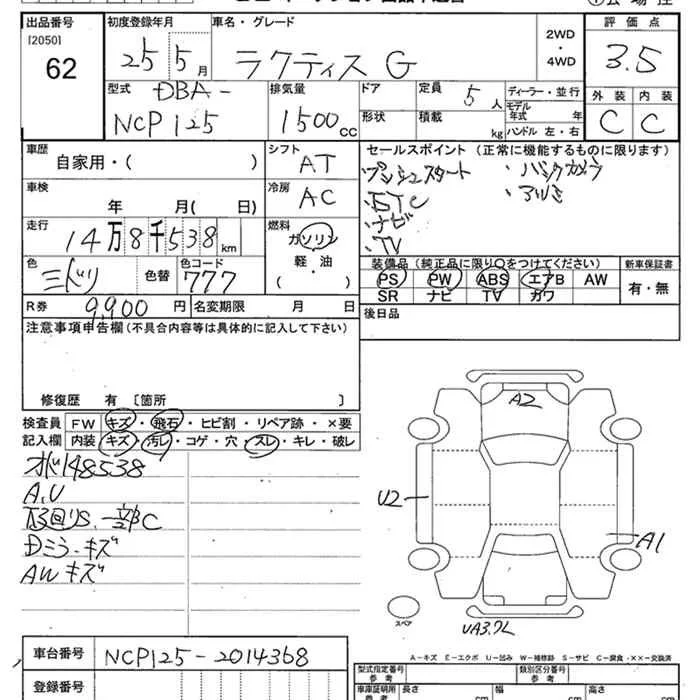 出品番号 初度登録年月 車名・グレード 評価点
[2050]
62 25 5月 ラクティス G 2WD・4WD 3.5
型式 DBA- 排気量 ドア 定員 5人 ディーラー・並行 外装 内装
NCP125 1500cc 形状 積載 kg モデル年式 年 C C
ハンドル 左・右
車歴 自家用・( ) シフト AT セールスポイント (正常に機能するものに限ります)
プッシュスタート ・バックカメラ
車検 年 月( 日) 冷房 AC ・ETC ・アルミ
・ナビ
走行 14万8千538km 燃料 ガソリン ・TV
軽・油
( )
色 ミドリ 色替 色コード 777 装備品 (純正品に限り○をつけてください) 新車保証書
PS PW ABS エアB AW 有・無
SR ナビ TV カワ
R券 9,900円 名変期限 月 日 後日品
注意事項申告欄(不具合内容等は具体的に記入して下さい)
修復歴 有 [箇所 ]
検査員 FW キズ・飛石・ヒビ割・リペア跡・×要
記入欄 内装 キズ・汚レ・コゲ・穴・スレ・キレ・破レ
オド148538
A,U
下回りS、一部C
Dミラーキズ
AWキズ
A2
U2
A1
スペア
UA3.2
A-キズ E-エクボ U-凹み W-補修跡 S-サビ C-腐食 ・××-交換済
車台番号 NCP125-2014368
登録番号
型式指定番号 参考 類別区分番号 参考
車庫証明用 参考 長さ cm 幅 cm 高さ cm